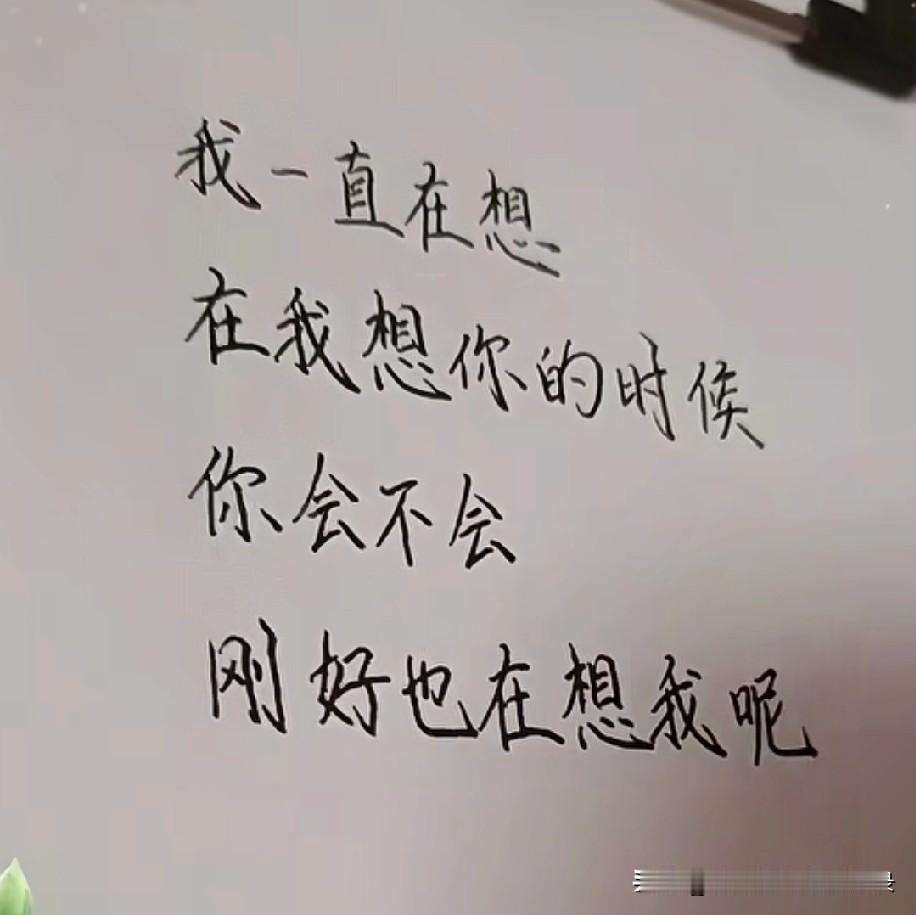 我一直在想
在我想你的时候
你会不会
刚好也在想我呢